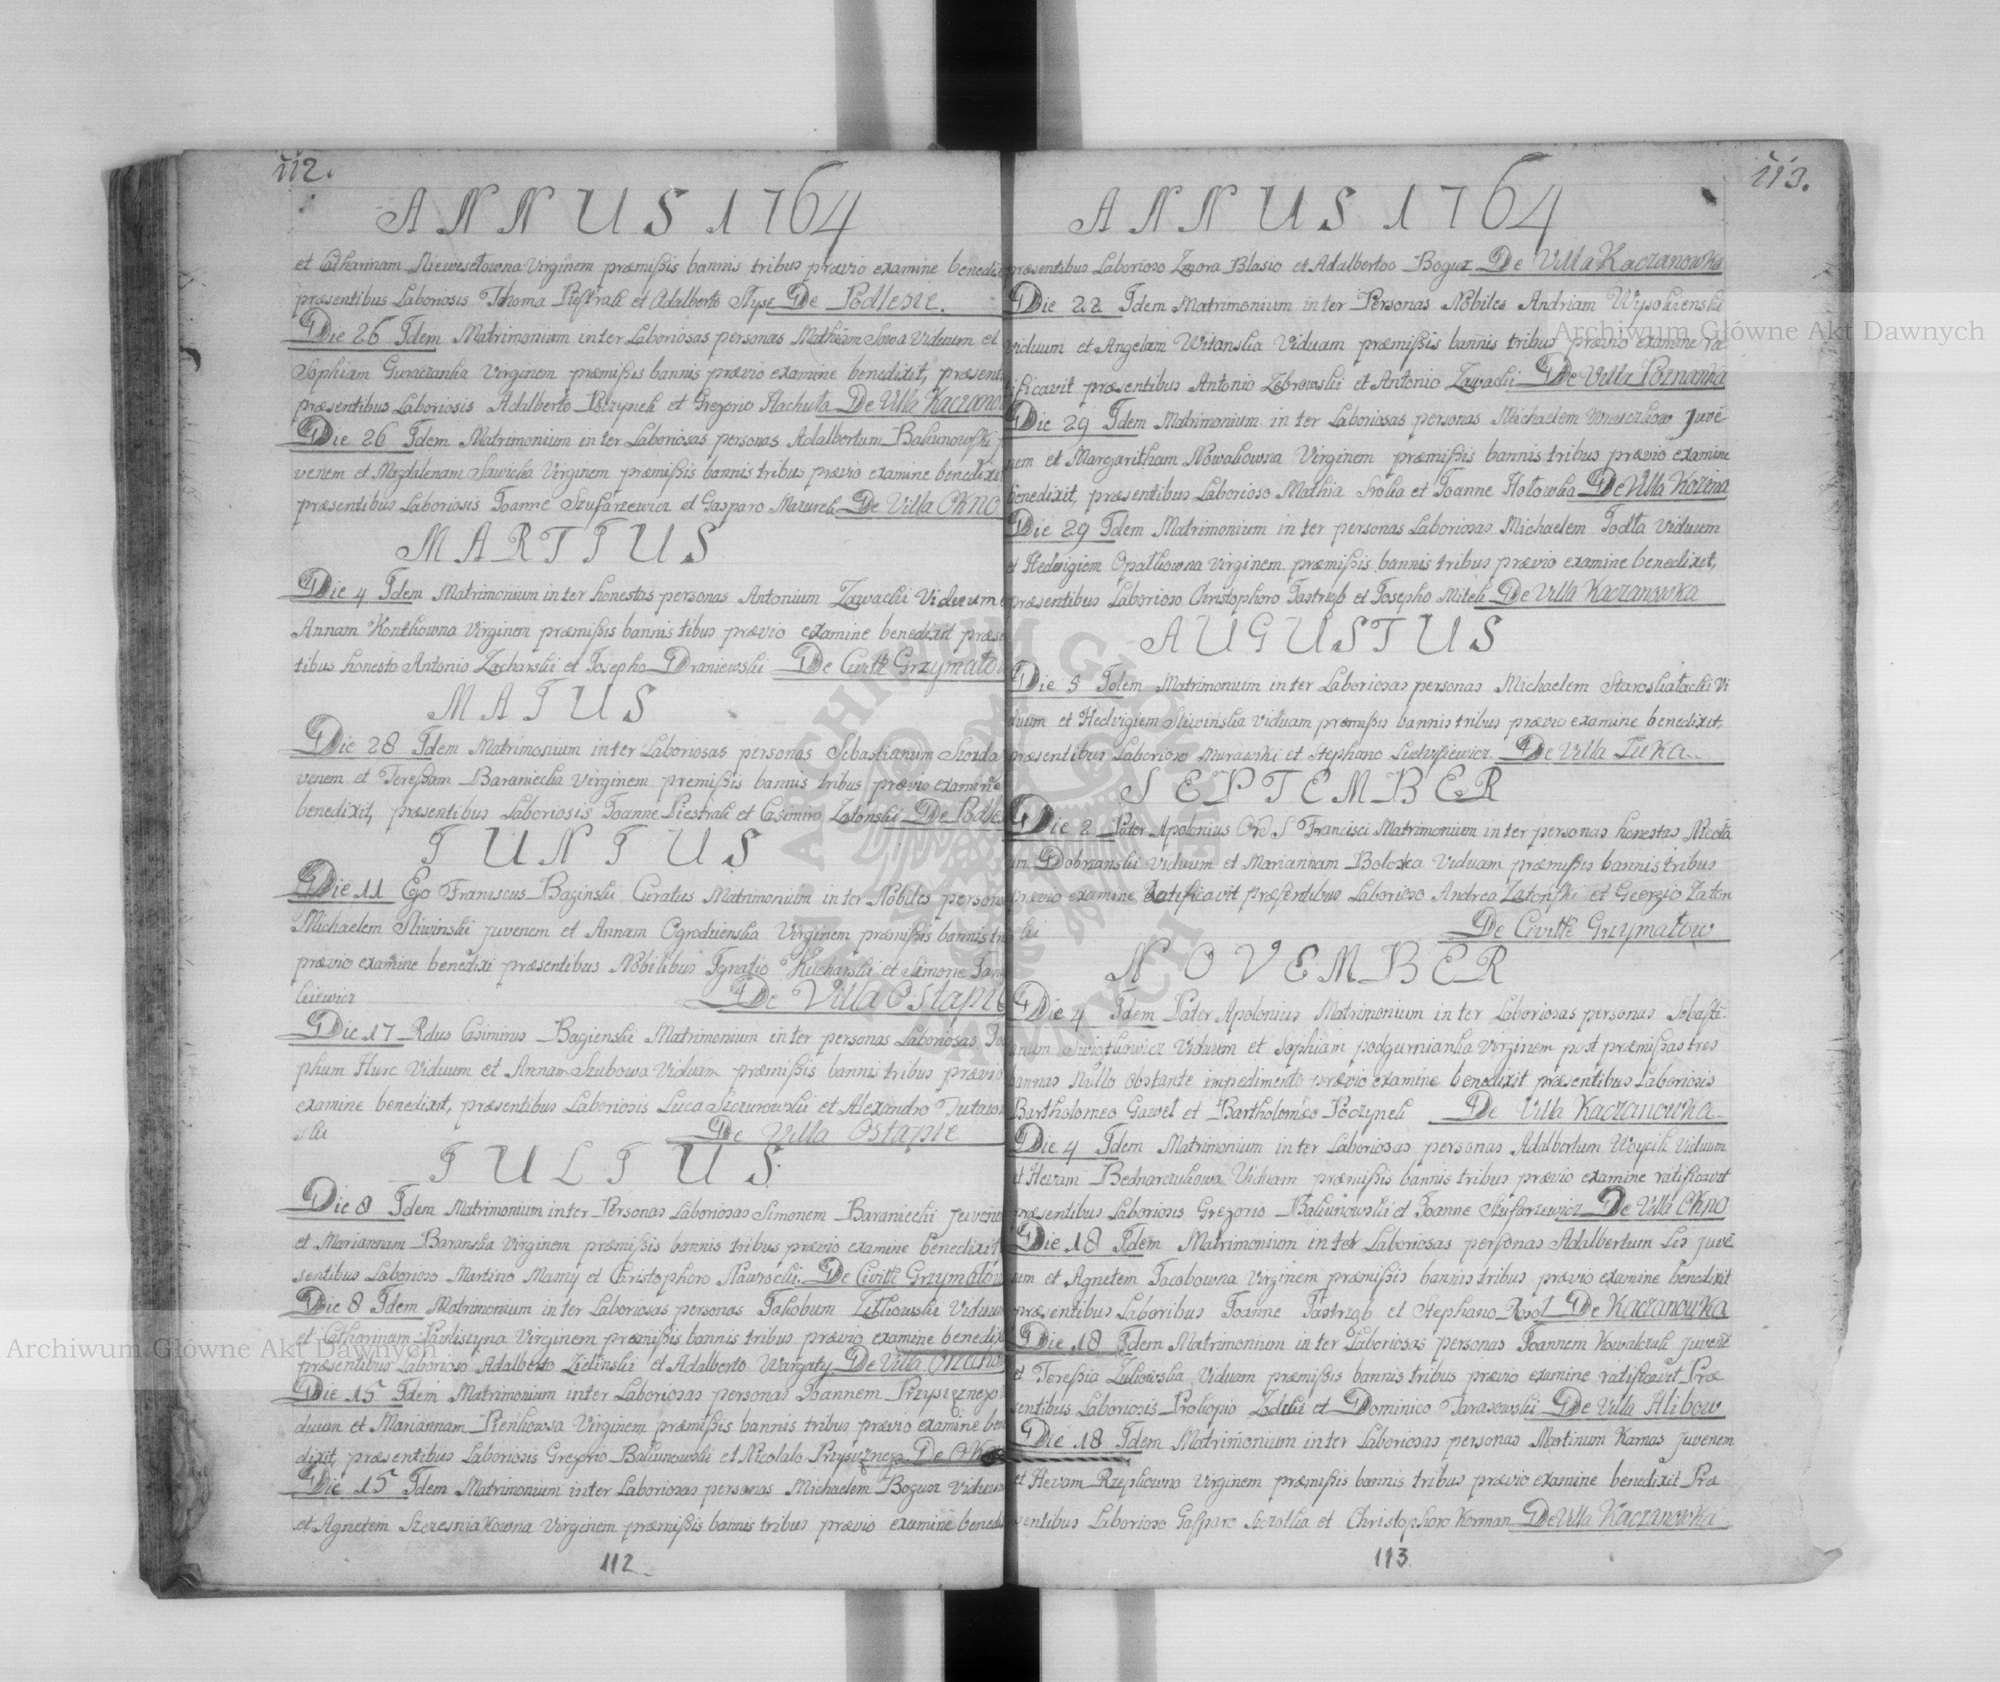 112.
ANNUS 1764
et Catharinam Niewesełowna Virginem præmißis bannis tribus prævio examine benedi
præsentibus Laboriosis Thoma Piestrak et Adalberto Styse De Podlesie.
Die 26 Idem Matrimonium inter Laboriosas personas Mathiam Sowa Viduum et
Sophiam Virginem præmißis bannis prævio examine benedixit, præsenti
præsentibus Laboriosis Adalberto Poczynek et Gregorio Stachuta De Villa Kaczano
Die 26 Idem Matrimonium inter Laboriosas personas Adalbertum Baliunowski
venem et Magdalenam Sawicka Virginem præmißis bannis tribus prævio examine benedixit
præsentibus Laboriosis Joanne Szufarzewicz et Gasparo Mazurek De Villa OKNO
MARTIUS
Die 4 Idem Matrimonium inter honestas personas Antonium Zawacki Viduum
Annam Konthowna Virginem præmißis bannis tibus prævio examine benedixit præse
tibus honesto Antonio Zacharski et Josepho Draniewski De Civitte Grzymałow
MAIUS
Die 28 Idem Matrimonium inter Laboriosas personas Sebastianum
venem et Tereßam Baraniecka Virginem premißis bannis tribus prævio examine
benedixit, præsentibus Laboriosis Joanne Piestrak et Casimiro Zatonski De Podle
IUNIUS
Die 11 Ego Franiscus Baginski Curatus Matrimonium inter Nobiles persona
Michaelem Sliwinski juvenem et Annam Ogrodzienska Virginem præmißis bannis tri
prævio examine benedixi præsentibus Nobilibus Ignatio Kucharski et Simone Jan
kiewicz De Villa Ostapie
Die 17 Rdus Casimirus Bagienski Matrimonium inter personas Laboriosas Jo
phum Huse Viduum et Annam Szubowa Viduam præmißis bannis tribus prævio
examine benedixit, præsentibus Laboriosis Luca Szczurowski et Alexandro
ski De Villa Ostapie
IULIUS
Die 8 Idem Matrimonium inter Personas Laboriosas Simonem Baraniecki Juvene
et Mariannam Baranska Virginem præmißis bannis tribus prævio examine benedixit
sentibus Laborioso Martino Mazny et Christophoro Nawrocki. De Civitte Grzymałow
Die 8 Idem Matrimonium inter Laboriosas personas Jakobum Viduum
et Catharinam Pavliszyna Virginem præmißis bannis tribus prævio examine benedix
præsentibus Laborioso Adalberto Zielinski et Adalberto Wargaty De Villa
Die 15 Idem Matrimonium inter Laboriosas personas Joannem Przysiezney
duum et Mariannam Pienkowsa Virginem præmißis bannis tribus prævio examine bene
dixit, præsentibus Laboriosis Gregorio Baliunowski et Nicolalo Przysiezney De
Die 15 Idem Matrimonium inter Laboriosas personas Michaelem Bogusz Viduum
et Agnetem Szczesniakowna Virginem præmißis bannis tribus prævio examine benedi
112
113.
ANNUS 1764
præsentibus Laborioso Zagora Blasio et Adalbertoo Bogusz De Villa Kaczanowka
Die 22 Idem Matrimonium inter Personas Nobiles Andriam Wysokienski
viduum et Angelam Witanska Viduam præmißis bannis tribus prævio examine ra
tificavit præsentibus Antonio Zebrowski et Antonio Zawacki De Villa Poznanka
Die 29 Idem Matrimonium inter Laboriosas personas Michaelem juvē
nem et Margaritham Nowakowna Virginem præmißis bannis tribus prævio examine
benedixit, præsentibus Laborioso Mathia Sroka et Joanne Hołowka De Villa Kozina
Die 29 Idem Matrimonium inter personas Laboriosas Michaelem Jodła viduum
et Hedwigiem Opalkowna Virginem præmißis bannis tribus prævio examine benedixit,
præsentibus Laborioso Christophoro Jastrząb et Josepho Mitek De Villa Kaczanowka
AUGUSTUS
Die 5 Idem Matrimonium inter Laboriosas personas Michaelem Vi
duum et Hedvigiem Sliwinska viduam præmißis bannis tribus prævio examine benedixit,
præsentibus Laborioso Murawski et Stephano De Villa Luka.
SEPTEMBER
Die 2 Pater Apolonius Ord S Francisci Matrimonium inter personas honestas Nicola
um Dobrzanski viduum et Mariannam Boloza Viduam præmißis bannis tribus
prævio examine Ratificavit præsentibus Laborioso Andrea Zatonski et Georgio Zaton
ski
De Civitte Grzymałow
NOVEMBER
Die 4 Idem Pater Apolonius Matrimonium inter Laboriosas personas Sebasti-
anum Viduum et Sophiam podgurnianka Virginem post præmißas tres
bannas Nullo obstante impedimento prævio examine benedixit præsentibus Laboriosis
Bartholomeo Gaweł et Bartholomeo Poczynek De Villa Kaczanowka
Die 4 Idem Matrimonium inter Laboriosas personas Adalbertum Woycik Viduum
et Hevam Bednarczukowa Viduam præmißis bannis tribus prævio examine ratificavit
præsentibus Laboriosis Gregorio Baliunowski et Joanne Szufarzewicz De Villa Okno
Die 18 Idem Matrimonium inter Laboriosas personas Adalbertum Lis juvē
nem et Agnetem Jacobowna Virginem præmißis bannis tribus prævio examine benedixit
præsentibus Laboribus Joanne Jastrząb et Stephano De Kaczanowka
Die 18 Idem Matrimonium inter Laboriosas personas Joannem Kowalczuk juvenē
et Tereßia Zulkowska Viduam præmißis bannis tribus prævio examine ratificavit Præ
sentibus Laboriosis Prokopio et Dominico Tarasowski De Villa Hlibow
Die 18 Idem Matrimonium inter Laboriosas personas Martinum Karnas juvenem
et Hevam Rzepkowna Virginem præmißis bannis tribus prævio examine benedixit Præ
sentibus Laborioso Gasparo et Christophoro Korman De Villa Kaczanowka
113
Archiwum Główne Akt Dawnych
Archiwum Główne Akt Dawnych